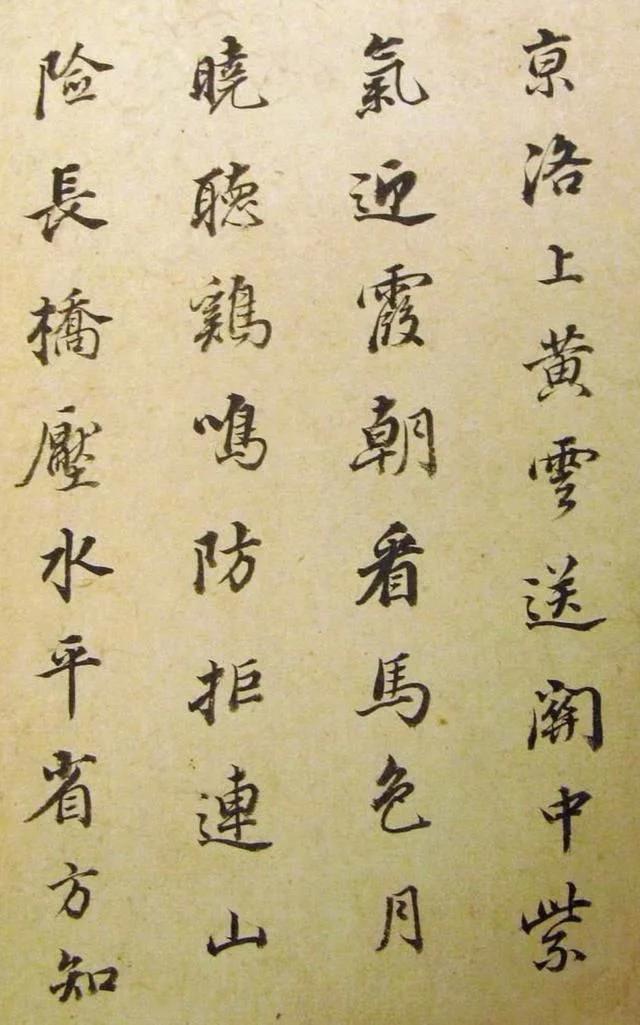 京洛上黄雲送關中紫
氣迎霞朝看馬色月
曉聽鷄鳴防拒連山
險長橋壓水平省方知